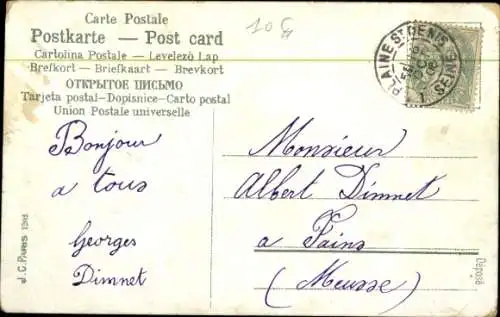 Carte Postale
Postkarte — Post card
Cartolina Postale — Levelező Lap
Brefkort — Briefkaart — Brevkort
ОТКРЫТОЕ ПИСЬМО
Tarjeta postal-Dopisnice-Carto postal
Union Postale universelle
10
PLAINE ST DENIS
SEINE
Bonjour
a tous
Georges
Dimnet
Monsieur
Albert Dimnet
a Fains
(Meusse)
J. C. PARIS
Déposé